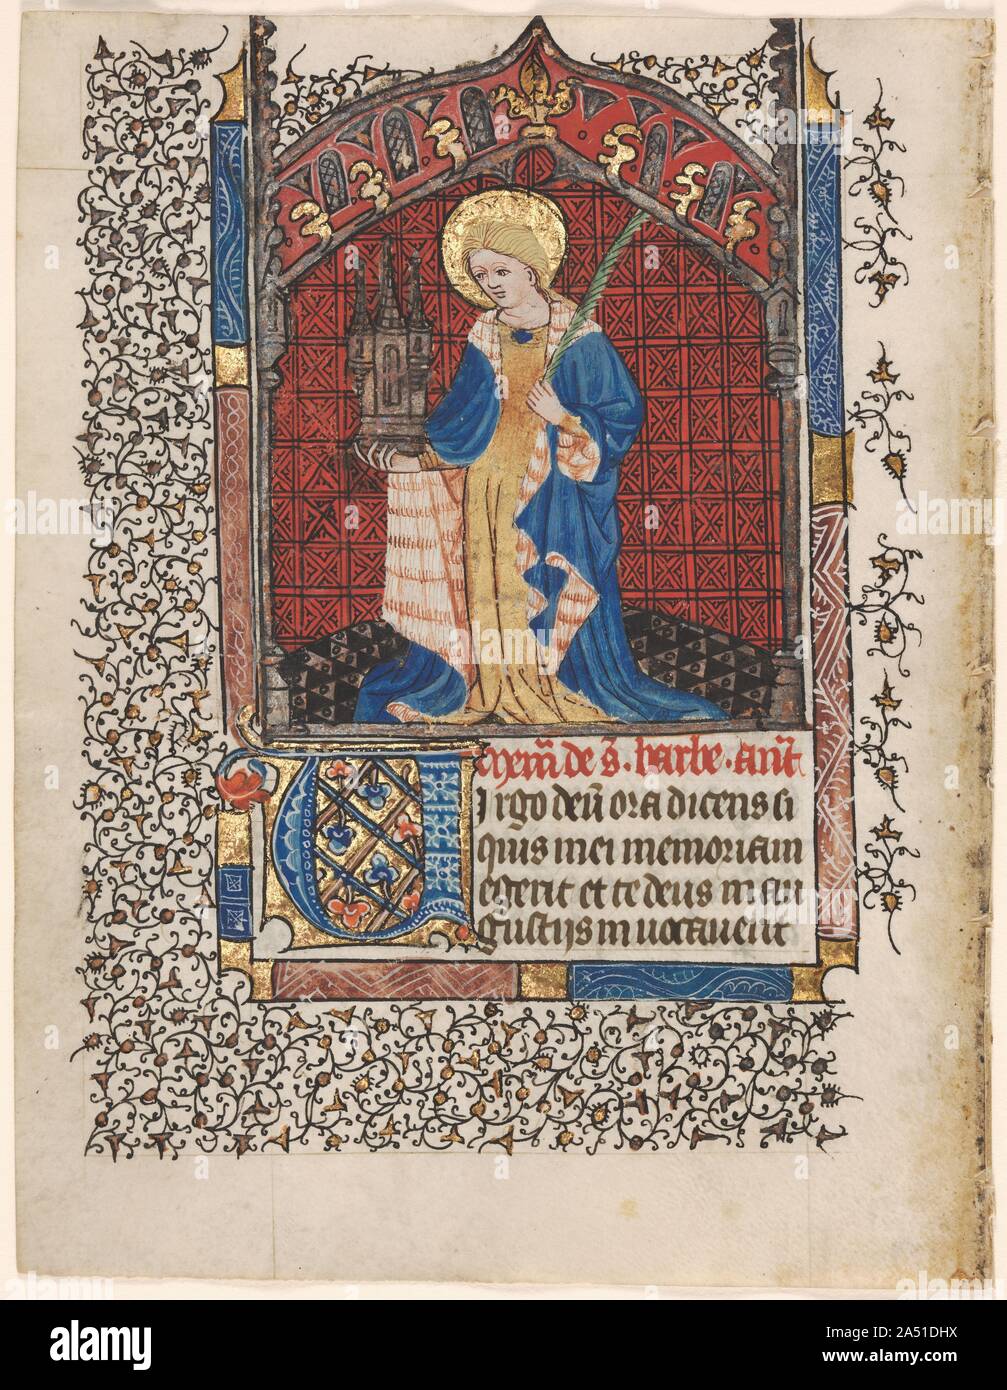 Mem̄ de S. barbe. añt
VIrgo deū ora dicens si
quis mei memoriam
egerit et te deus in an
gustijs inuocauerit
alamy
Image ID: 2A51DHX
www.alamy.com